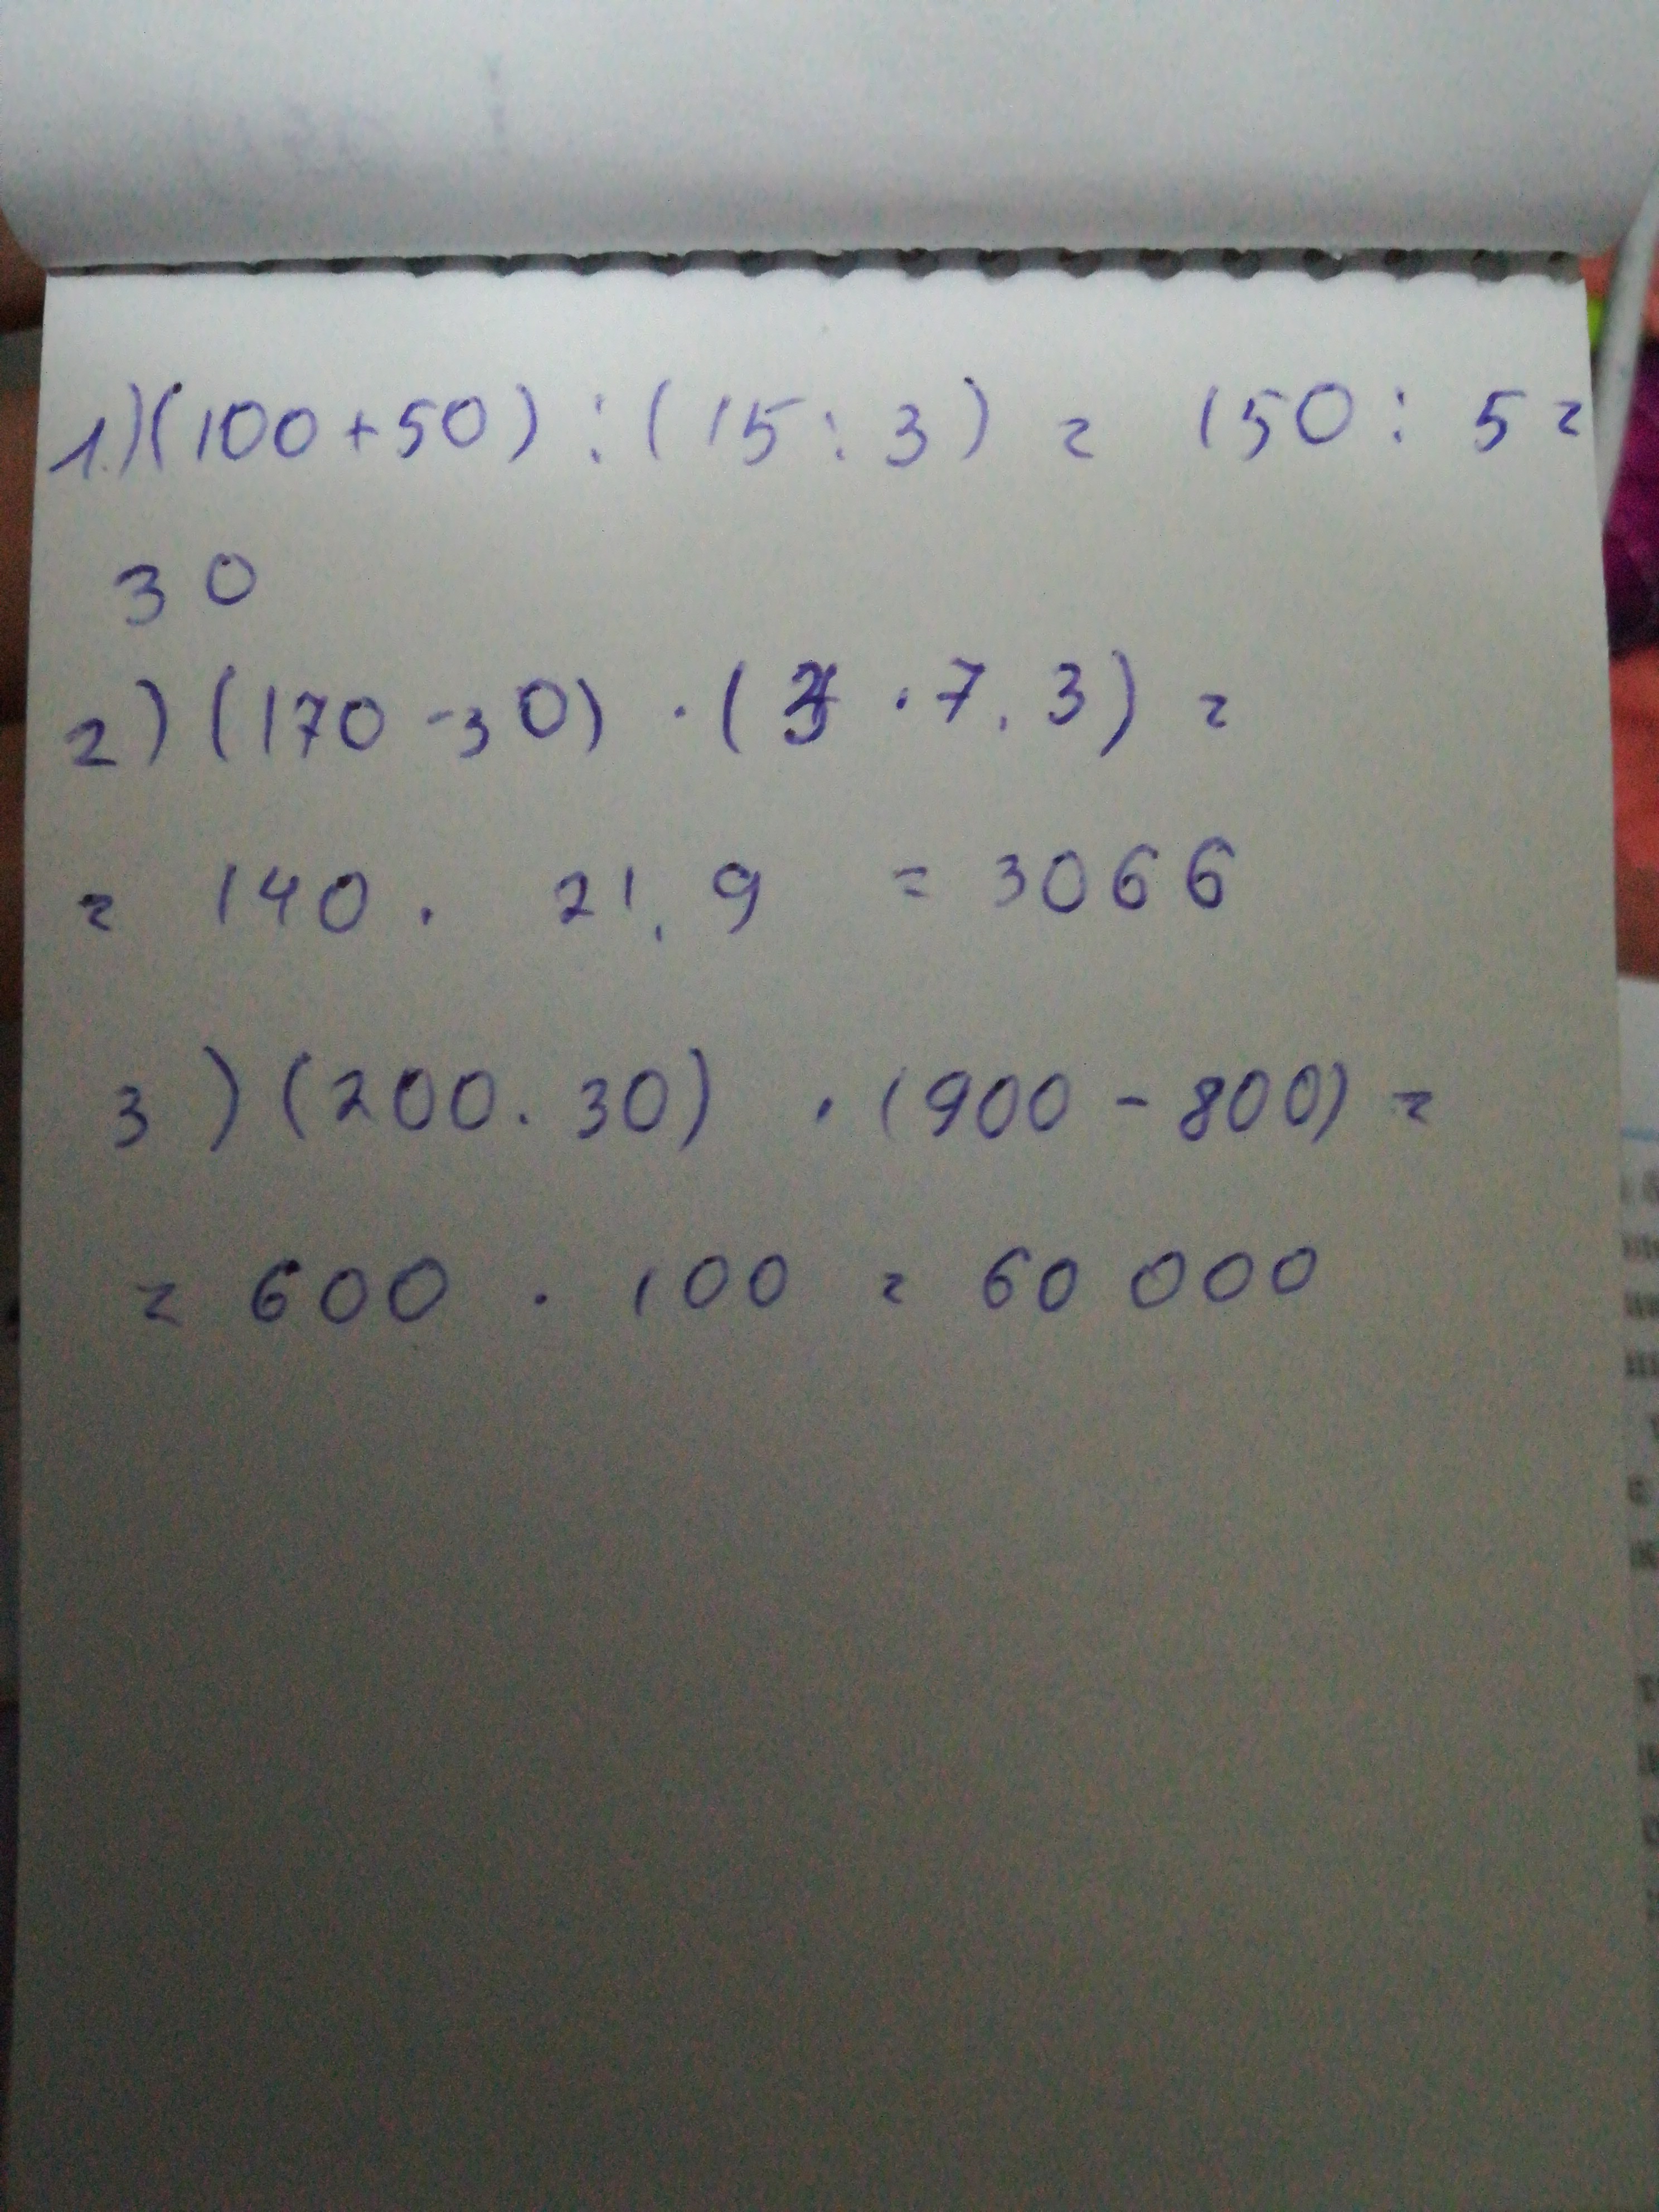 1.)(100+50):(15:3) = 150:5=
30
2)(170-30)·(3·7,3)=
= 140 · 21,9 = 3066
3)(200·30) · (900-800)=
= 600 · 100 = 60 000